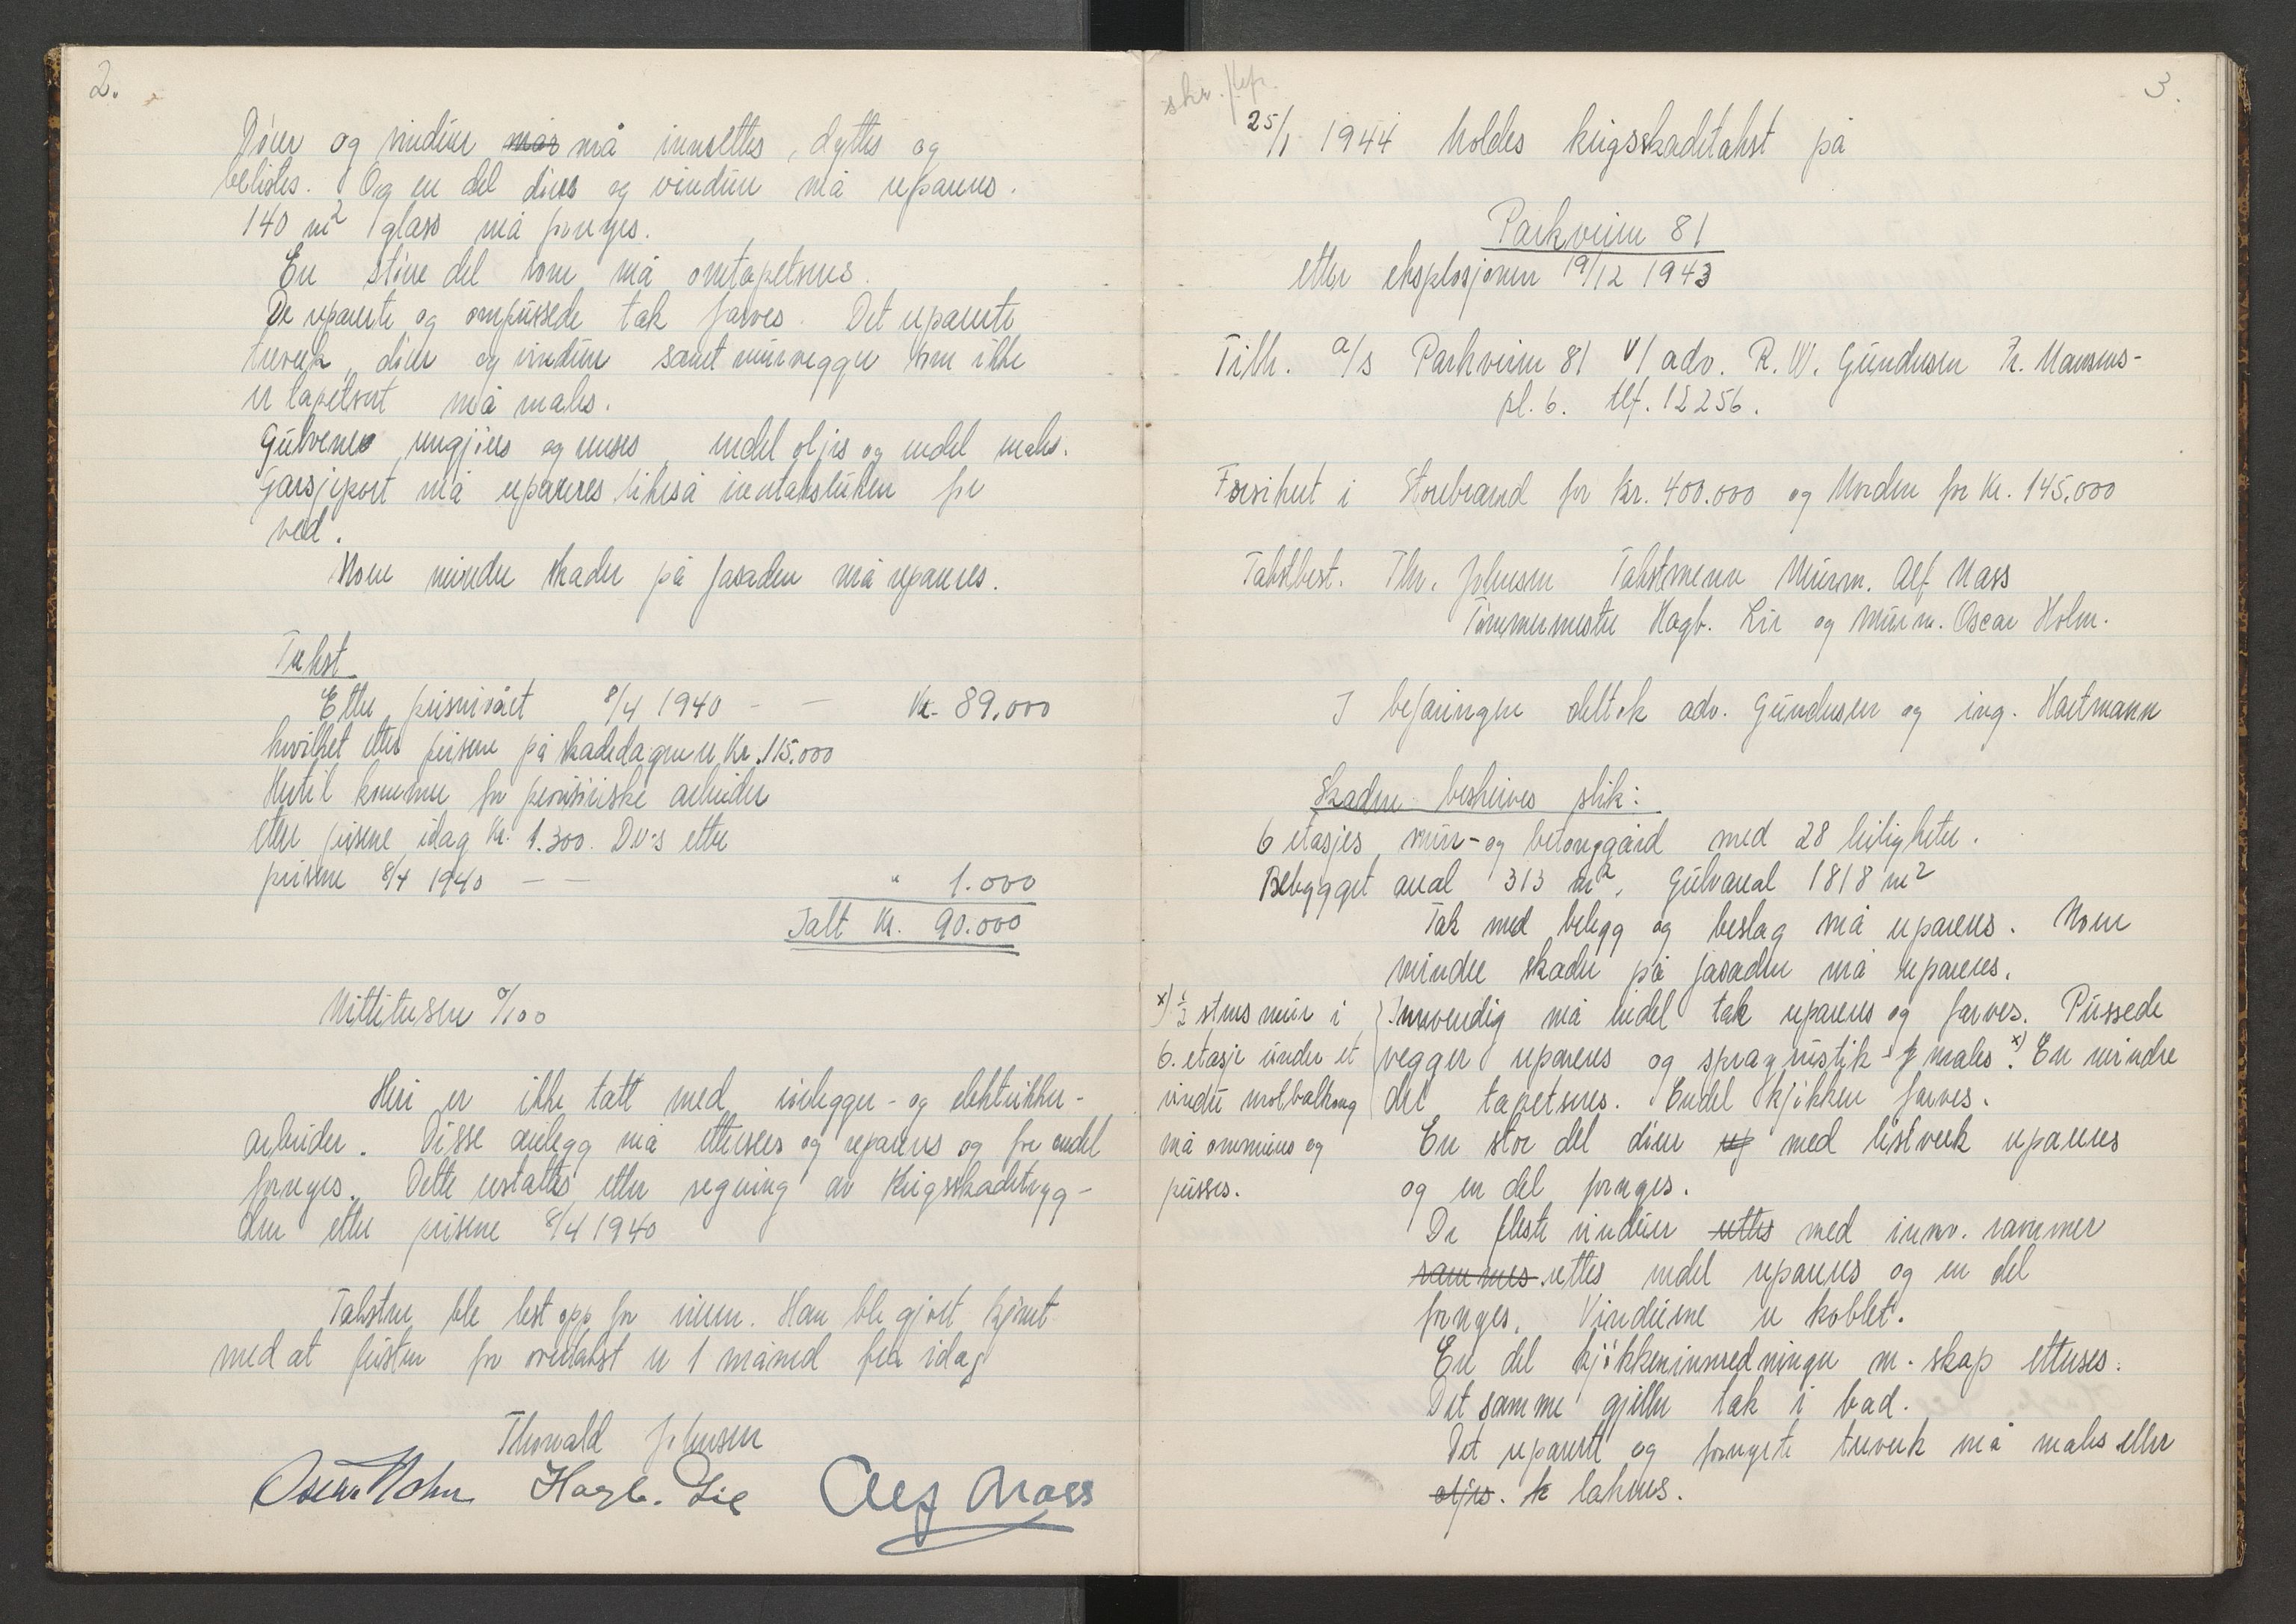 2.
Dører og vinduer ~~mås~~ må innsettes, dyttes og
belistes. Og en del dører og vinduer må repareres.
140 m² glass må fornyes.
En større del rom må omtapetseres.
De reparerte og ompussede tak farves. Det reparerte
treverk, dører og vinduer samt murvegger som ikke
er tapetsert må males.
Gulvene rengjøres og renses, endel oljes og endel males.
Garsjeport må repareres likeså inntaksluken for
ved.
Noen mindre skader på fasaden må repareres.
Takst
Etter prisnivået 8/4 1940 - — Kr. 89.000
hvilket etter prisene på skadedagen er Kr. 115.000
Hertil kommer for provisoriske arbeider
etter prisene idag Kr. 1.300. Dv:s etter
prisene 8/4 1940 — — " 1.000
Ialt Kr. 90.000
Nittitusen 0/100
Heri er ikke tatt med rørlegger- og elektriker-
arbeider. Disse anlegg må etterses og repareres og for endel
fornyes. Dette erstattes etter regning av Krigsskadetryg-
den etter prisene 8/4 1940
Taksten ble lest opp for eieren. Han ble gjort kjent
med at fristen for overtakst er 1 måned fra idag
Thorvald Johnsen
Oscar Holm Hagb. Lie Alf Næss
skr. / rep.
3.
25/1 1944 holdes krigsskadetakst på
Parkveien 81
etter eksplosjonen 19/12 1943
Tilh. a/s Parkveien 81 v/ adv. R. W. Gundersen Fr. Nansens-
pl. 6. tlf. 12256.
Forsikret i Storebrand for kr. 400.000 og Norden for Kr. 145.000
Takstbest. Thv. Johnsen Takstmenn Murm. Alf Næss
Tømmermester Hagb. Lie og murm. Oscar Holm.
I befaringen deltok adv. Gundersen og ing. Hartmann
Skaden beskrives slik:
6 etasjes mur- og betonggård med 28 leiligheter.
Bebygget areal 313 m², Gulvareal 1818 m²
Tak med belegg og beslag må repareres. Noen
mindre skader på fasaden må repareres.
Innvendig må endel tak repareres og farves. Pussede
vegger repareres og spragrustik males x). En mindre
del tapetseres. Endel kjøkken farves.
x) ½ stens mur i
6. etasje under et
vindu mot balkong
må ommures og
pusses.
En stor del dører ~~rep~~ med listverk repareres
og en del fornyes.
De fleste vinduer ~~rettes~~ med innv. rammer
~~rammes~~ rettes endel repareres og en del
fornyes. Vinduerne er koblet.
En del kjøkkeninnredninger m. skap etterses.
Det samme gjelder tak i bad.
Det reparerte og fornyete treverk må males eller
~~oljes~~. lakeres.